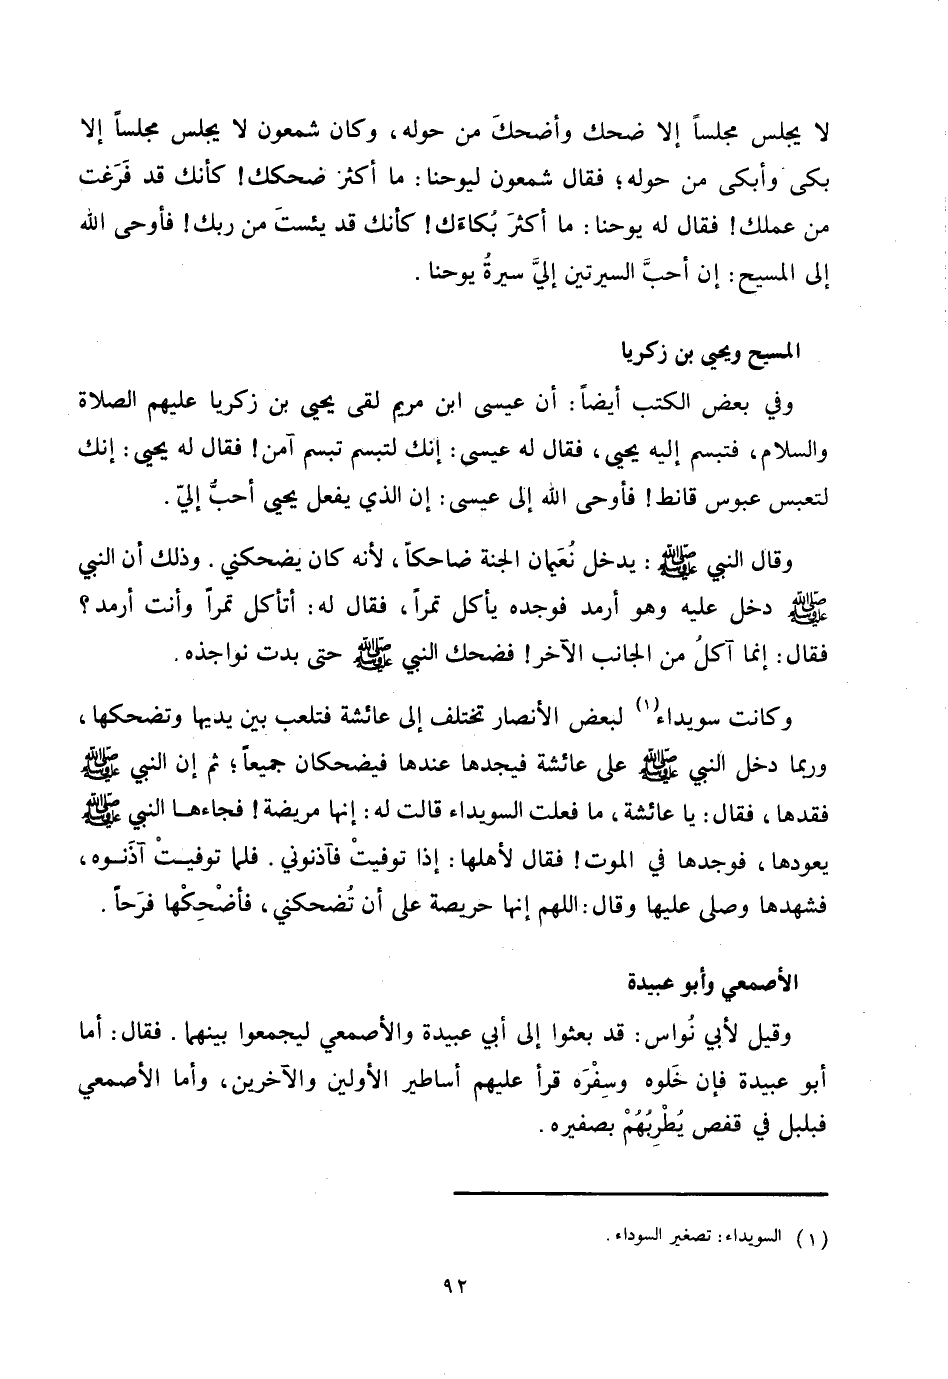 لا يجلس مجلساً إلا ضحك وأضحكَ من حوله، وكان شمعون لا يجلس مجلساً إلا
بكى وأبكى من حوله؛ فقال شمعون ليوحنا: ما أكثرَ ضحكك! كأنك قد فَرَغت
من عملك! فقال له يوحنا: ما أكثرَ بُكاءَك! كأنك قد يئستَ من ربك! فأوحى الله
إلى المسيح: إن أحبَّ السيرتين إليَّ سيرةُ يوحنا.
المسيح ويحيى بن زكريا
وفي بعض الكتب أيضاً: أن عيسى ابن مريم لقى يحيى بن زكريا عليهم الصلاة
والسلام، فتبسم إليه يحيى، فقال له عيسى: إنك لتبسم تبسم آمن! فقال له يحيى: إنك
لتعبس عبوس قانط! فأوحى الله إلى عيسى: إن الذي يفعل يحيى أحبُّ إليّ.
وقال النبي ﷺ: يدخل نُعَيمان الجنة ضاحكاً، لأنه كان يضحكني. وذلك أن النبي
ﷺ دخل عليه وهو أرمد فوجده يأكل تمراً، فقال له: أتأكل تمراً وأنت أرمد؟
فقال: إنما آكلُ من الجانب الآخر! فضحك النبي ﷺ حتى بدت نواجذه.
وكانت سويداء(١) لبعض الأنصار تختلف إلى عائشة فتلعب بين يديها وتضحكها،
وربما دخل النبي ﷺ على عائشة فيجدها عندها فيضحكان جميعاً؛ ثم إن النبي ﷺ
فقدها، فقال: يا عائشة، ما فعلت السويداء قالت له: إنها مريضة! فجاءها النبي ﷺ
يعودها، فوجدها في الموت! فقال لأهلها: إذا توفيتْ فآذنوني. فلما توفيتْ آذَنوه،
فشهدها وصلى عليها وقال: اللهم إنها حريصة على أن تُضحكني، فأضْحِكْها فرَحاً.
الأصمعي وأبو عبيدة
وقيل لأبي نُواس: قد بعثوا إلى أبي عبيدة والأصمعي ليجمعوا بينهما. فقال: أما
أبو عبيدة فإن خَلوه وسِفْرَه قرأ عليهم أساطير الأولين والآخرين، وأما الأصمعي
فبلبل في قفص يُطْرِبُهُمْ بصفيره.
(١) السويداء: تصغير السوداء.
٩٢